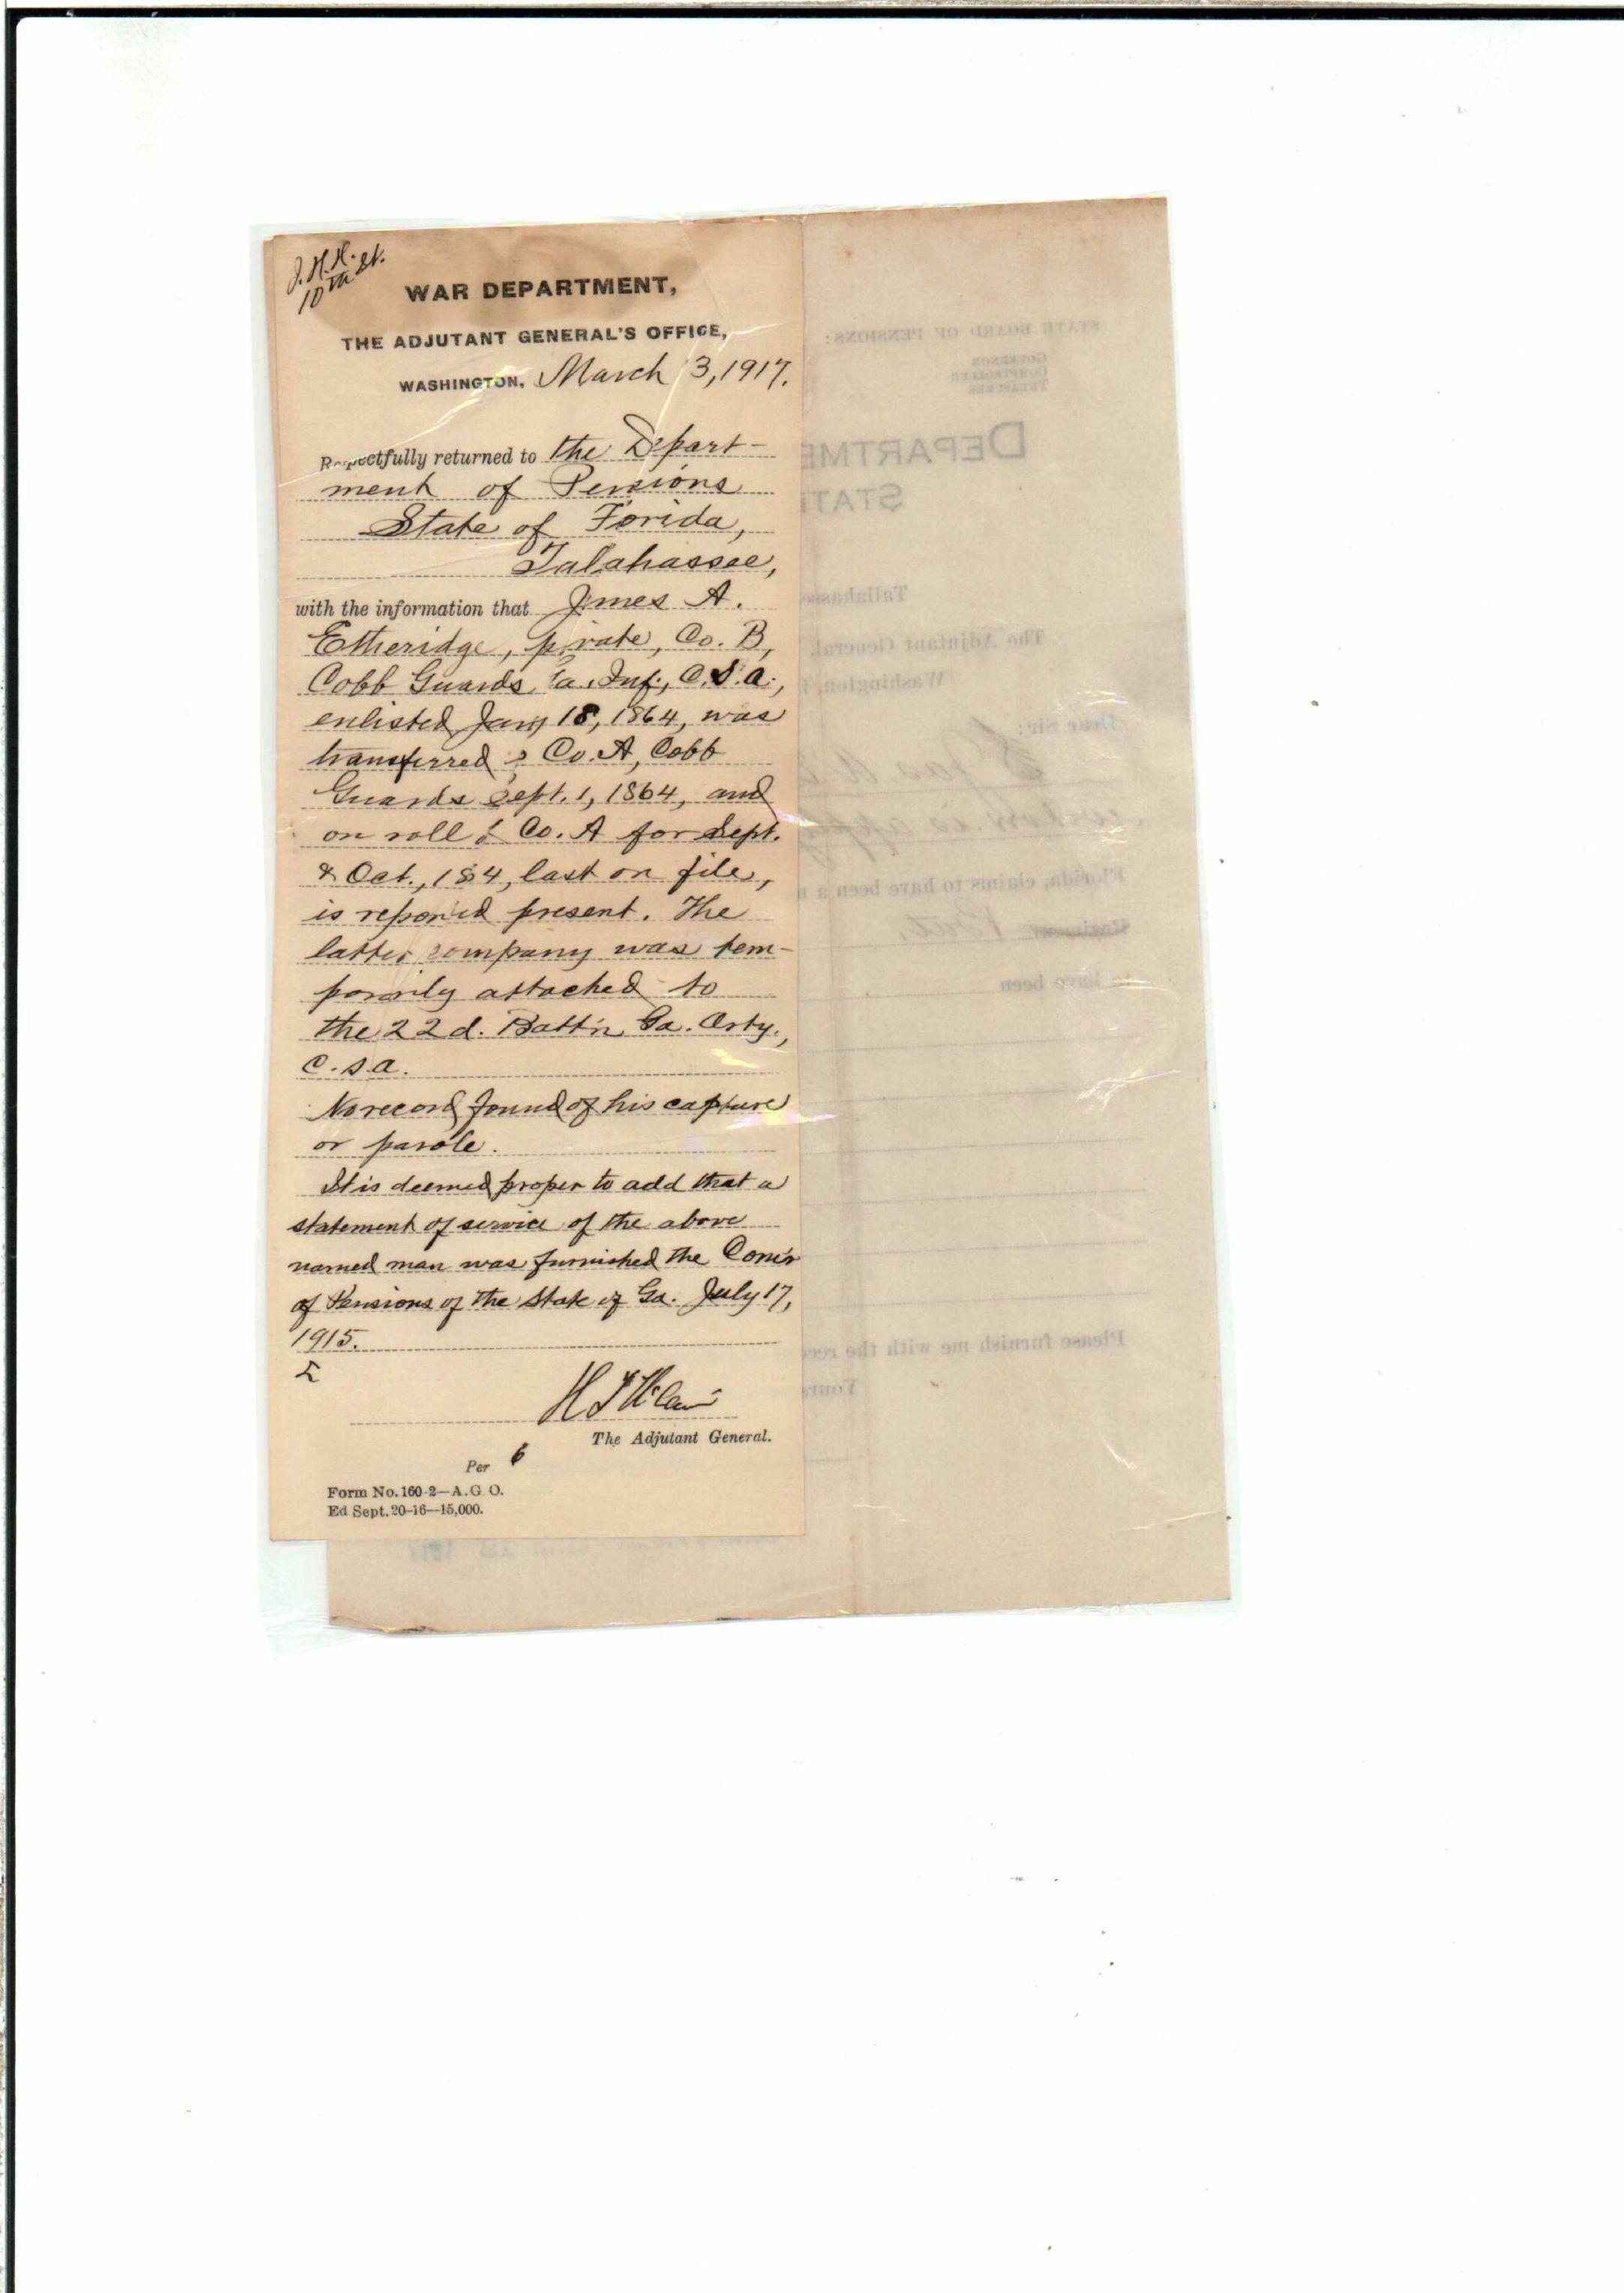 J.H.H.
10th St.
WAR DEPARTMENT,
THE ADJUTANT GENERAL'S OFFICE,
WASHINGTON, March 3, 1917.
Respectfully returned to the Depart-
ment of Pensions
State of Forida,
Talahassee,
with the information that Jmes A.
Etheridge, private, Co. B,
Cobb Guards, Ga. Inf., C.S.A.,
enlisted Jany 18, 1864, was
transferred Co. A, Cobb
Guards Sept. 1, 1864, and
on roll Co. A for Sept.
& Oct., 184, last on file,
is reported present. The
latter company was tem-
porarily attached to
the 22d. Batt'n Ga. Arty.,
C.S.A.
No record found of his capture
or parole.
It is deemed proper to add that a
statement of service of the above
named man was furnished the Com'r
of Pensions of the State of Ga. July 17,
1915.
The Adjutant General.
Per 6
Form No. 160-2—A.G.O.
Ed Sept. 20-16—15,000.
STATE BOARD OF PENSIONS:
GOVERNOR
COMPTROLLER
TREASURER
DEPARTME
STAT
Tallahass
The Adjutant General,
Washington,
Dear Sir:
Jas. A.
Florida, claims to have been a
to have been
Please furnish me with the rec
Yours